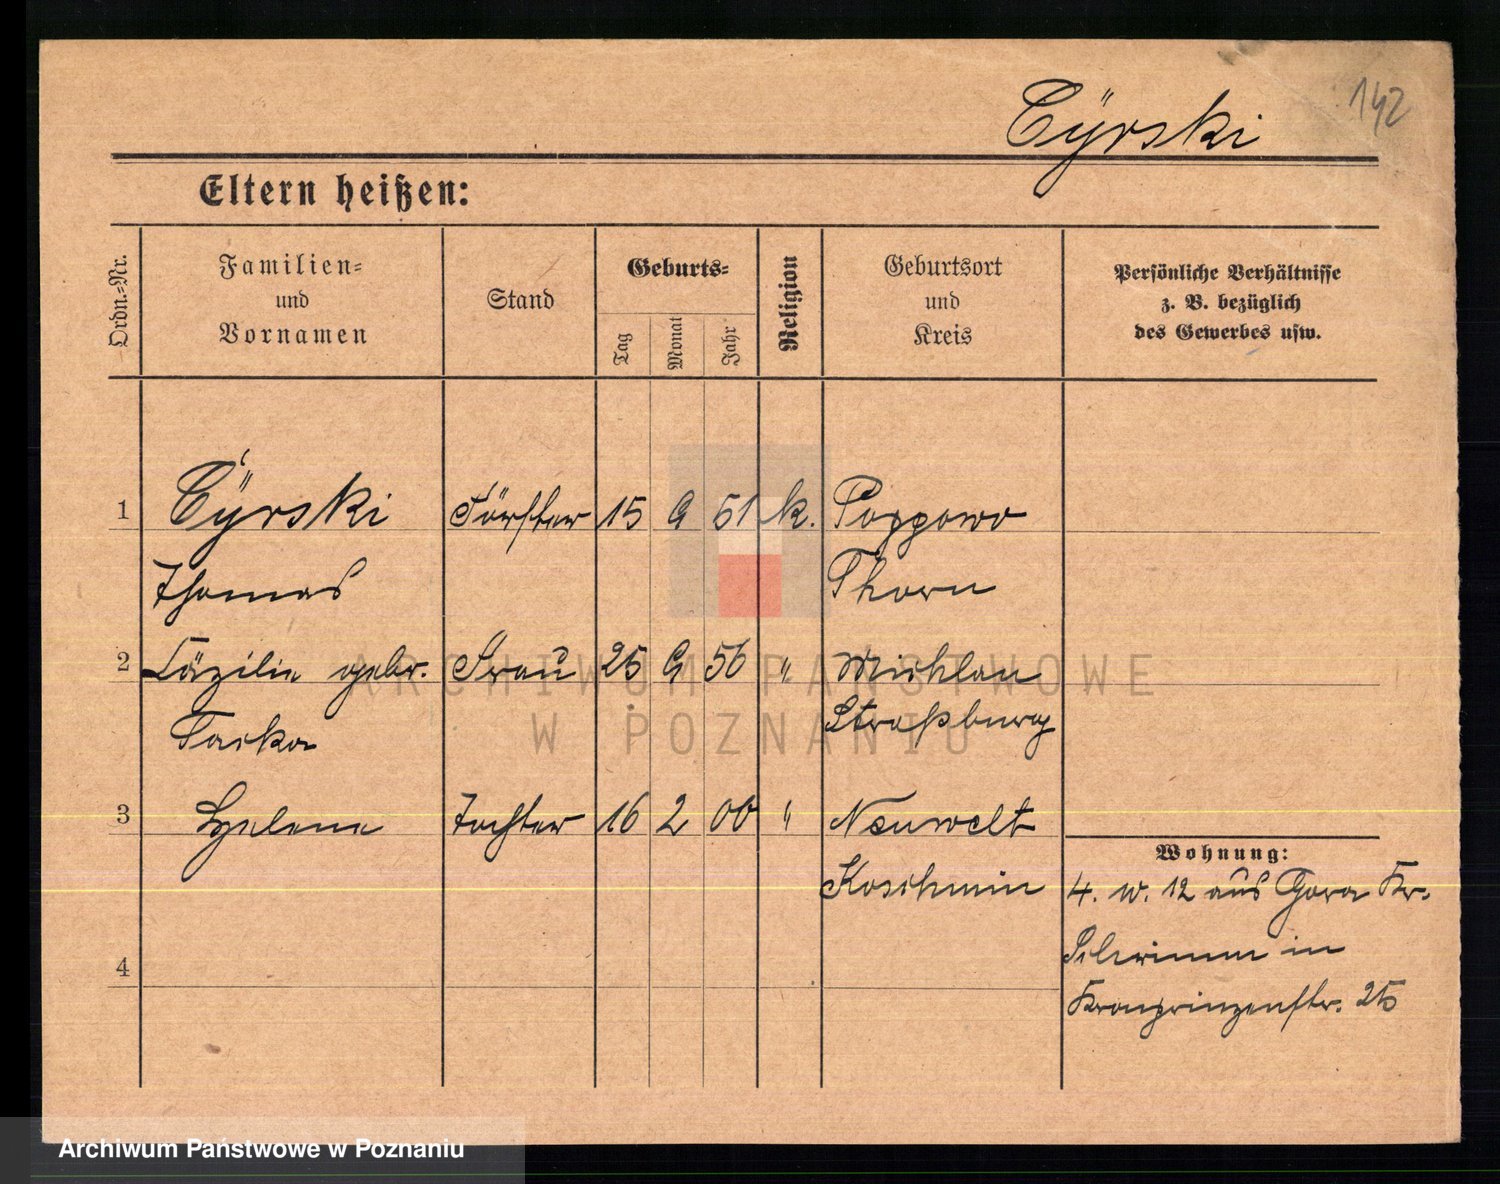 142
Cÿrski
Eltern heißen:
Ordn.-Nr.
Familien-
und
Vornamen
Stand
Geburts-
Tag
Monat
Jahr
Religion
Geburtsort
und
Kreis
Persönliche Verhältnisse
z. B. bezüglich
des Gewerbes usw.
1 Cÿrski Förster 15 9 51 k. Poppowo
Thomas Thorn
2 Cäzilie gebr. Frau 25 9 56 " Michlau
Straßburg
3 Helene Tochter 16 2 00 " Neuwelt
Koschmin
4
Wohnung:
4. w. 12 aus Gora Kr.
Schrimm in
Kronprinzenstr.
ARCHIWUM PAŃSTWOWE
W POZNANIU
Archiwum Państwowe w Poznaniu